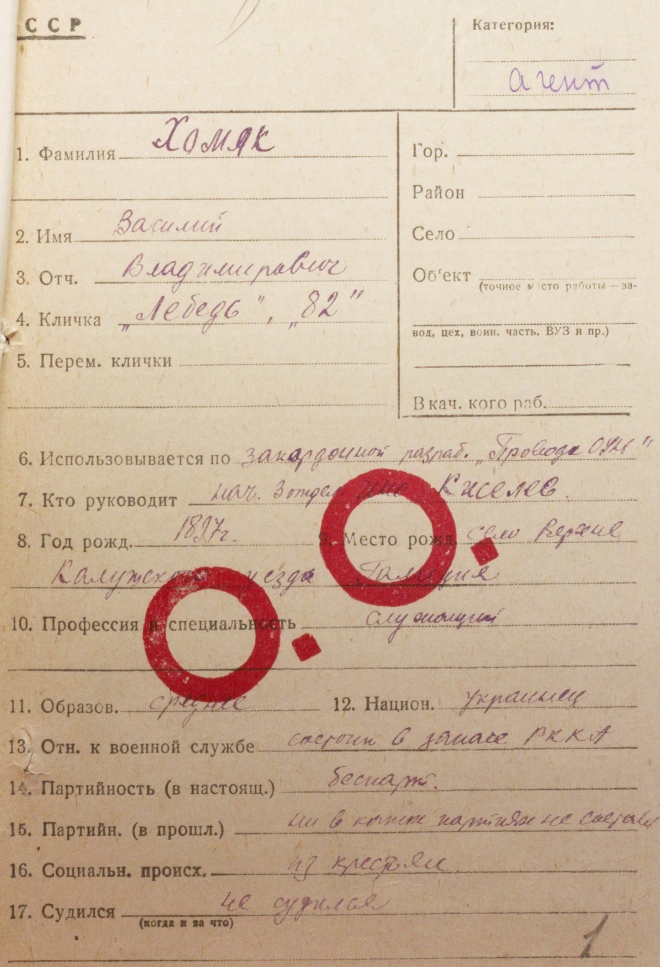 ССР
Категория:
Агент
1. Фамилия Хомяк
2. Имя Василий
3. Отч. Владимирович
4. Кличка „Лебедь", „82"
5. Перем. клички
Гор.
Район
Село
Об'ект
(точное место работы — за-
вод, цех, воин. часть. ВУЗ и пр.)
В кач. кого раб.
6. Использовывается по закордонной разраб. „Провода ОУН"
7. Кто руководит нач. 3 отдел Киселев.
8. Год рожд. 1897г.
9. Место рожд. село Верхне
Калужского уезда Галиция
10. Профессия и специальность служащий
11. Образов. среднее
12. Национ. украинец
13. Отн. к военной службе состоит в запасе РККА
14. Партийность (в настоящ.) беспарт.
15. Партийн. (в прошл.) ни в каких партиях не состоял
16. Социальн. происх. из крестьян.
17. Судился не судился
(когда и за что)
О. О.
1